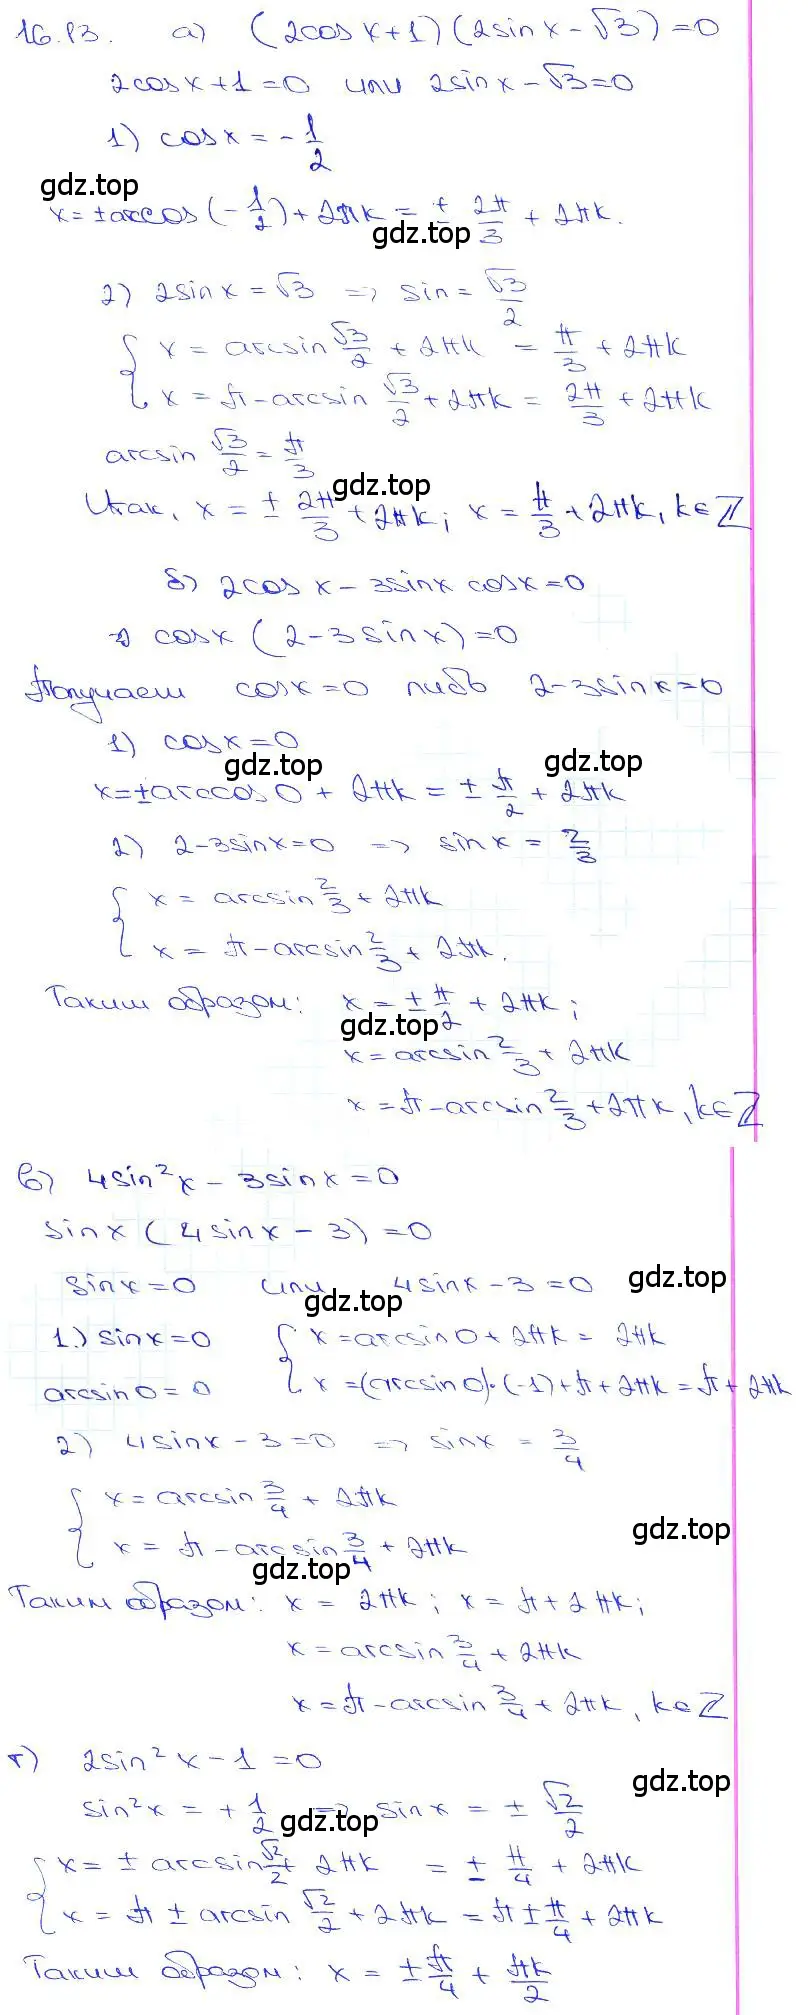 16.13. а) (2cos x + 1)(2sin x - √3) = 0
2cos x + 1 = 0 или 2sin x - √3 = 0
1) cos x = - 1/2
gdz.top
x = ± arccos (- 1/2) + 2πk = ± 2π/3 + 2πk.
gdz.top
2) 2sin x = √3 => sin = √3/2
{ x = arcsin √3/2 + 2πk = π/3 + 2πk
x = π - arcsin √3/2 + 2πk = 2π/3 + 2πk
arcsin √3/2 = π/3
gdz.top
Итак, x = ± 2π/3 + 2πk; x = π/3 + 2πk, k∈Z
б) 2cos x - 3sin x cos x = 0
cos x (2 - 3sin x) = 0
Получаем cos x = 0 либо 2 - 3sin x = 0
1) cos x = 0
gdz.top gdz.top
x = ± arccos 0 + 2πk = ± π/2 + 2πk
2) 2 - 3sin x = 0 => sin x = 2/3
{ x = arcsin 2/3 + 2πk
x = π - arcsin 2/3 + 2πk.
Таким образом: x = ± π/2 + 2πk;
gdz.top
x = arcsin 2/3 + 2πk
x = π - arcsin 2/3 + 2πk, k∈Z
в) 4sin² x - 3sin x = 0
sin x (4sin x - 3) = 0
sin x = 0 или 4sin x - 3 = 0
gdz.top
gdz.top
1.) sin x = 0 { x = arcsin 0 + 2πk = 2πk
arcsin 0 = 0 x = (arcsin 0)·(-1) + π + 2πk = π + 2πk
2) 4sin x - 3 = 0 => sin x = 3/4
{ x = arcsin 3/4 + 2πk
x = π - arcsin 3/4 + 2πk
gdz.top
gdz.top
Таким образом: x = 2πk; x = π + 2πk;
x = arcsin 3/4 + 2πk
x = π - arcsin 3/4 + 2πk, k∈Z
г) 2sin² x - 1 = 0
gdz.top
sin² x = + 1/2 => sin x = ± √2/2
gdz.top
{ x = ± arcsin √2/2 + 2πk = ± π/4 + 2πk
x = π ± arcsin √2/2 + 2πk = π ± π/4 + 2πk
Таким образом: x = ± π/4 + πk/2